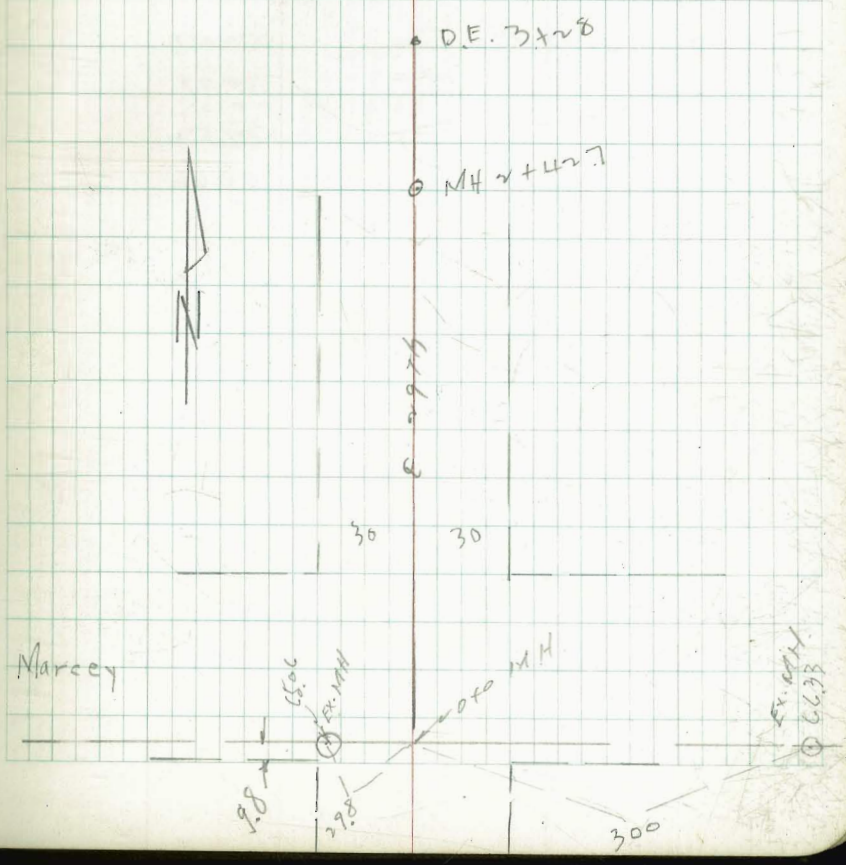 D.E. 3+28
MH 2+42.7
N
30
30
Marcey
Ex. MH
0+0 MH
Ex. MH
66.33
9.8
29.8
300